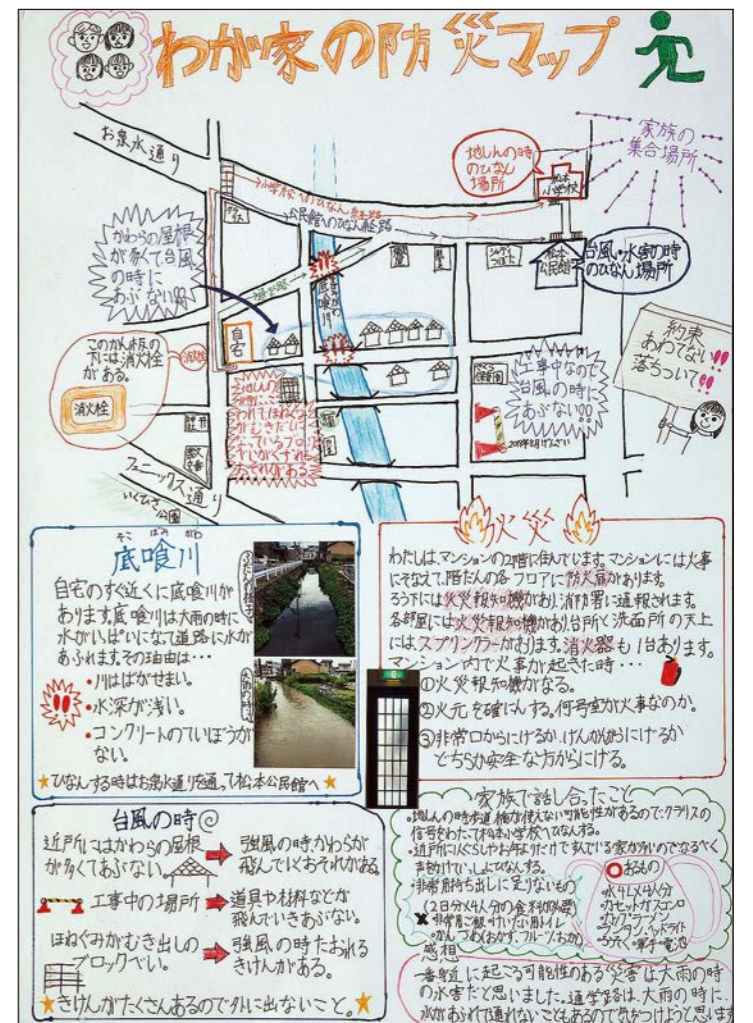 わが家の防災マップ
お泉水通り
小学校へのひなん経路
公民館へのひなん経路
地しんの時
のひなん
場所
松本
小学校
家族の
集合場所
松本
公民館
台風・水害の時
のひなん場所
かわらの屋根
が多くて台風
の時に
あぶない!!
通学路
底喰川
自宅
このかん板の
下には消火栓
がある。
消火栓
消火栓
地しんの
時に
なっているブロック
べいがくずれる
おそれがある
工事中なので
台風の時に
あぶない!!
約束
あわてない!!
落ちついて!!
フェニックス通り
いくひさ公園
底喰川
そこ ばみ がわ
自宅のすぐ近くに底喰川が
あります。底喰川は大雨の時に
水がいっぱいになって道路に水が
あふれます。その理由は…
・川はばがせまい。
・水深が浅い。
・コンクリートのていぼうが
ない。
ふだんの様子
大雨の時
★ひなんする時はお泉水通りを通って松本公民館へ★
火災
わたしは、マンションの2階に住んでいます。マンションには火事
にそなえて、階だんの各フロアに防火扉があります。
ろう下には火災報知機があり、消防署に通報されます。
各部屋には火災報知機があり、台所と洗面所の天上
には、スプリンクラーがあります。消火器も1台あります。
マンション内で火事が起きた時…
①火災報知機がなる。
②火元を確にんする。何号室が火事なのか。
③非常口からにげるか、げんかんからにげるか
どちらか安全な方からにげる。
台風の時
近所にはかわらの屋根
が多くてあぶない。
強風の時かわらが
飛んでいくおそれがある。
工事中の場所
道具や材料などが
飛んでいきあぶない。
ほねぐみがむき出しの
ブロックべい。
強風の時たおれる
きけんがある。
★きけんがたくさんあるので外に出ないこと。★
家族で話し合ったこと
・地しんの時歩道橋が使えない可能性があるのでクラリスの
信号をわたって松本小学校へひなんする。
・近所に1人ぐらしやお年よりだけですんでいる家が多いのでなるべく
声をかけていっしょにひなんする。
・非常用持ち出しに足りないもの
(2日分×4人分の食料が必要)
×非常用ご飯・けいたい用トイレ
・かんづめ(おかず、フルーツ、おかし)
○おもの
・水4L×4人分
・カセットガスコンロ
・カップラーメン
・ランタン、ヘッドライト
感想
一番身近に起こる可能性のある災害は大雨の時
の水害だと思いました。通学路は、大雨の時に
水があふれて通れないこともあるので気をつけようと思います